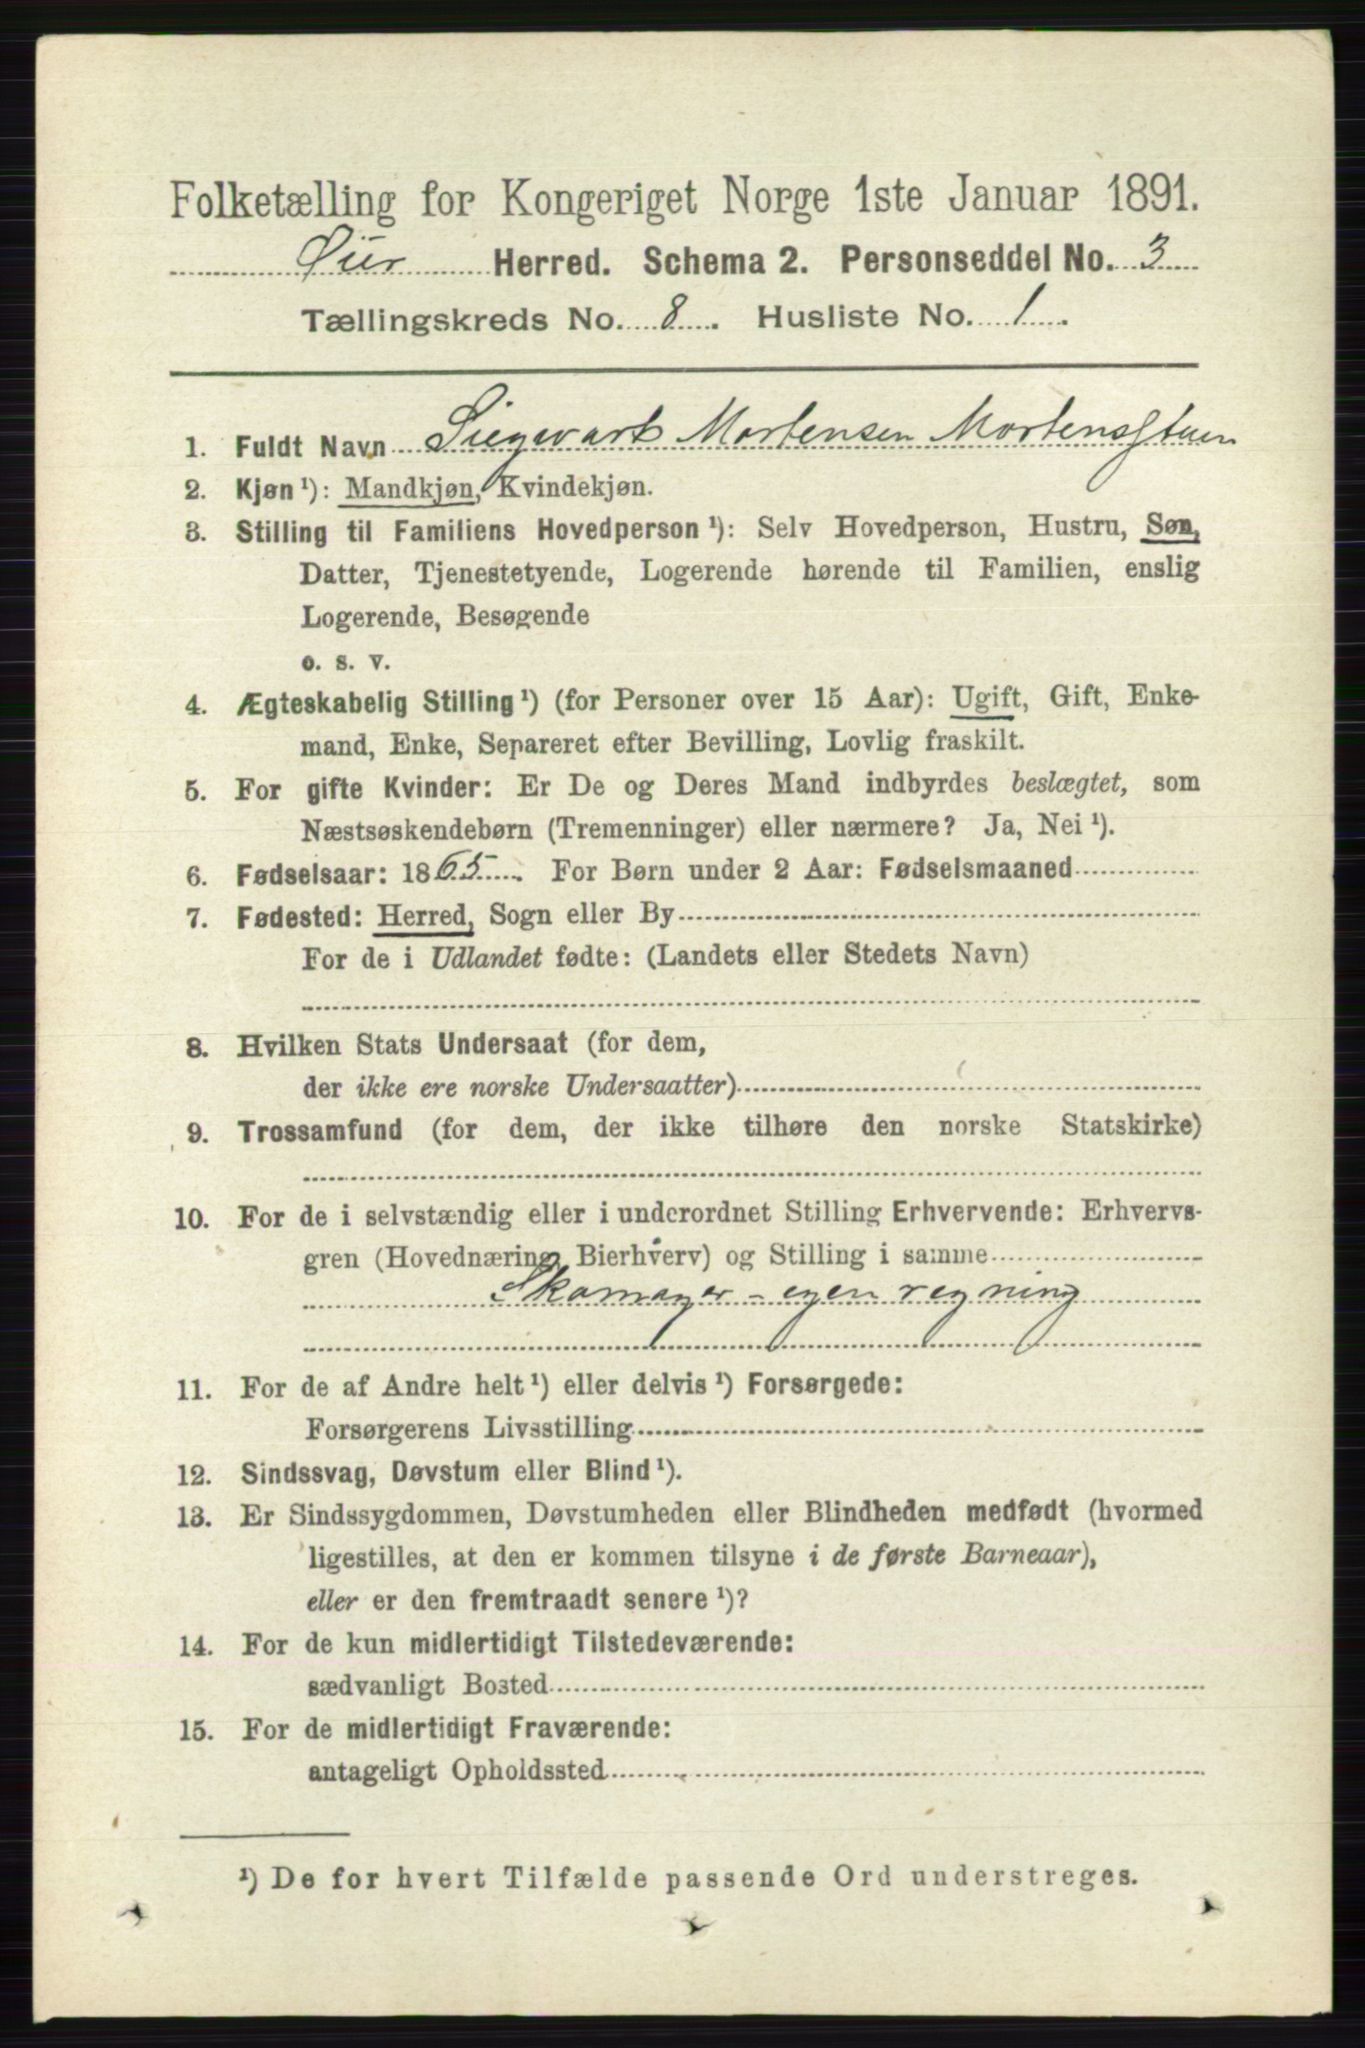 Folketælling for Kongeriget Norge 1ste Januar 1891.
Øier Herred. Schema 2. Personseddel No. 3
Tællingskreds No. 8. Husliste No. 1.
1. Fuldt Navn Siegwart Mortensen Mortensstuen
2. Kjøn ¹): Mandkjøn, Kvindekjøn.
3. Stilling til Familiens Hovedperson ¹): Selv Hovedperson, Hustru, Søn,
Datter, Tjenestetyende, Logerende hørende til Familien, enslig
Logerende, Besøgende
o. s. v.
4. Ægteskabelig Stilling ¹) (for Personer over 15 Aar): Ugift, Gift, Enke-
mand, Enke, Separeret efter Bevilling, Lovlig fraskilt.
5. For gifte Kvinder: Er De og Deres Mand indbyrdes beslægtet, som
Næstsøskendebørn (Tremenninger) eller nærmere? Ja, Nei ¹).
6. Fødselsaar: 1865. For Børn under 2 Aar: Fødselsmaaned
7. Fødested: Herred, Sogn eller By
For de i Udlandet fødte: (Landets eller Stedets Navn)
8. Hvilken Stats Undersaat (for dem,
der ikke ere norske Undersaatter)
9. Trossamfund (for dem, der ikke tilhøre den norske Statskirke)
10. For de i selvstændig eller i underordnet Stilling Erhvervende: Erhvervs-
gren (Hovednæring, Bierhverv) og Stilling i samme
Skomager - egen regning
11. For de af Andre helt ¹) eller delvis ¹) Forsørgede:
Forsørgerens Livsstilling
12. Sindssvag, Døvstum eller Blind ¹).
13. Er Sindssygdommen, Døvstumheden eller Blindheden medfødt (hvormed
ligestilles, at den er kommen tilsyne i de første Barneaar),
eller er den fremtraadt senere ¹)?
14. For de kun midlertidigt Tilstedeværende:
sædvanligt Bosted
15. For de midlertidigt Fraværende:
antageligt Opholdssted
¹) De for hvert Tilfælde passende Ord understreges.